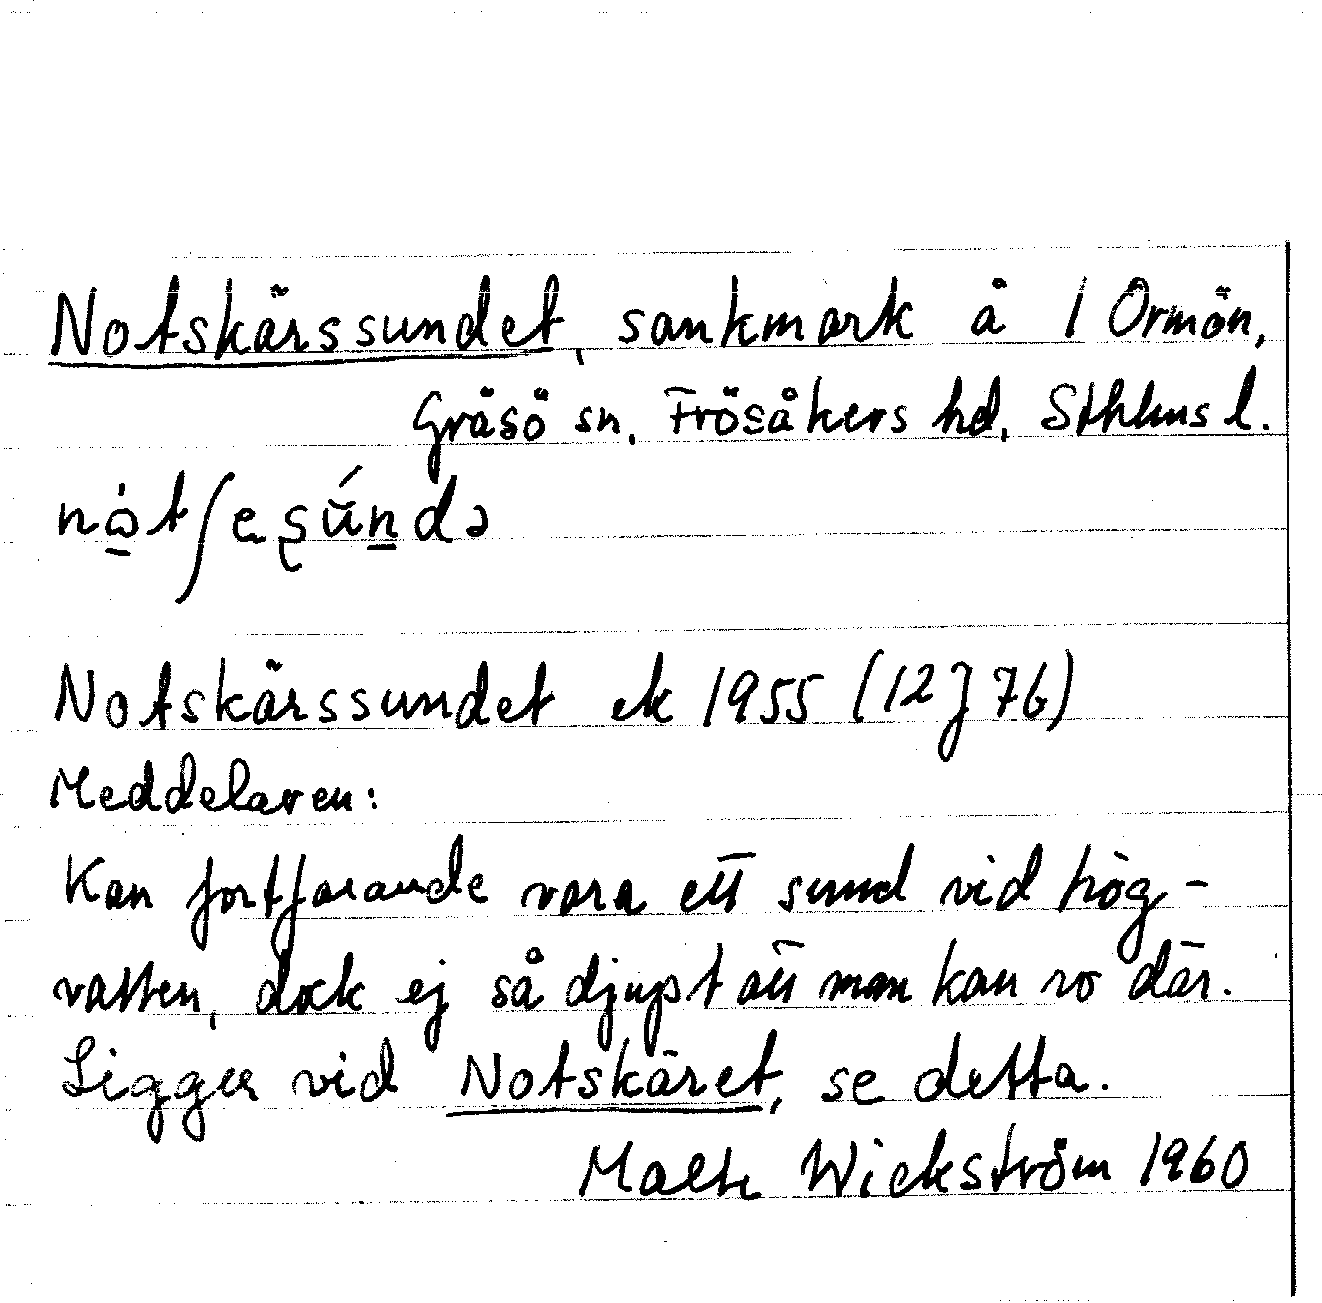 Notskärssundet, sankmark å 1 Ormön,
Gräsö sn, Frösåkers hd, Sthlms l.
Notskärssundet ek 1955 (12J 76)
Meddelaren:
Kan fortfarande vara ett sund vid hög-
vatten, dock ej så djupt att man kan ro där.
Ligger vid Notskäret, se detta.
Malte Wickström 1960